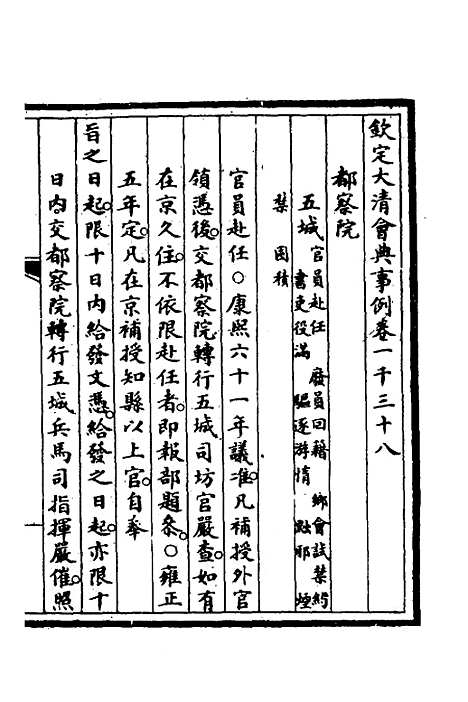 欽定大清會典事例卷一千三十八
都察院
五城 官員赴任 廢員回籍 鄉會試禁約
書吏役滿 驅逐游惰 黜邪
禁 囤積
官員赴任○康熙六十一年議准凡補授外官
領憑後交都察院轉行五城司坊官嚴查如有
在京久住不依限赴任者即報部題參○雍正
五年定凡在京補授知縣以上官自奉
旨之日起限十日内給發文憑給發之日起亦限十
日内交都察院轉行五城兵馬司指揮嚴催照